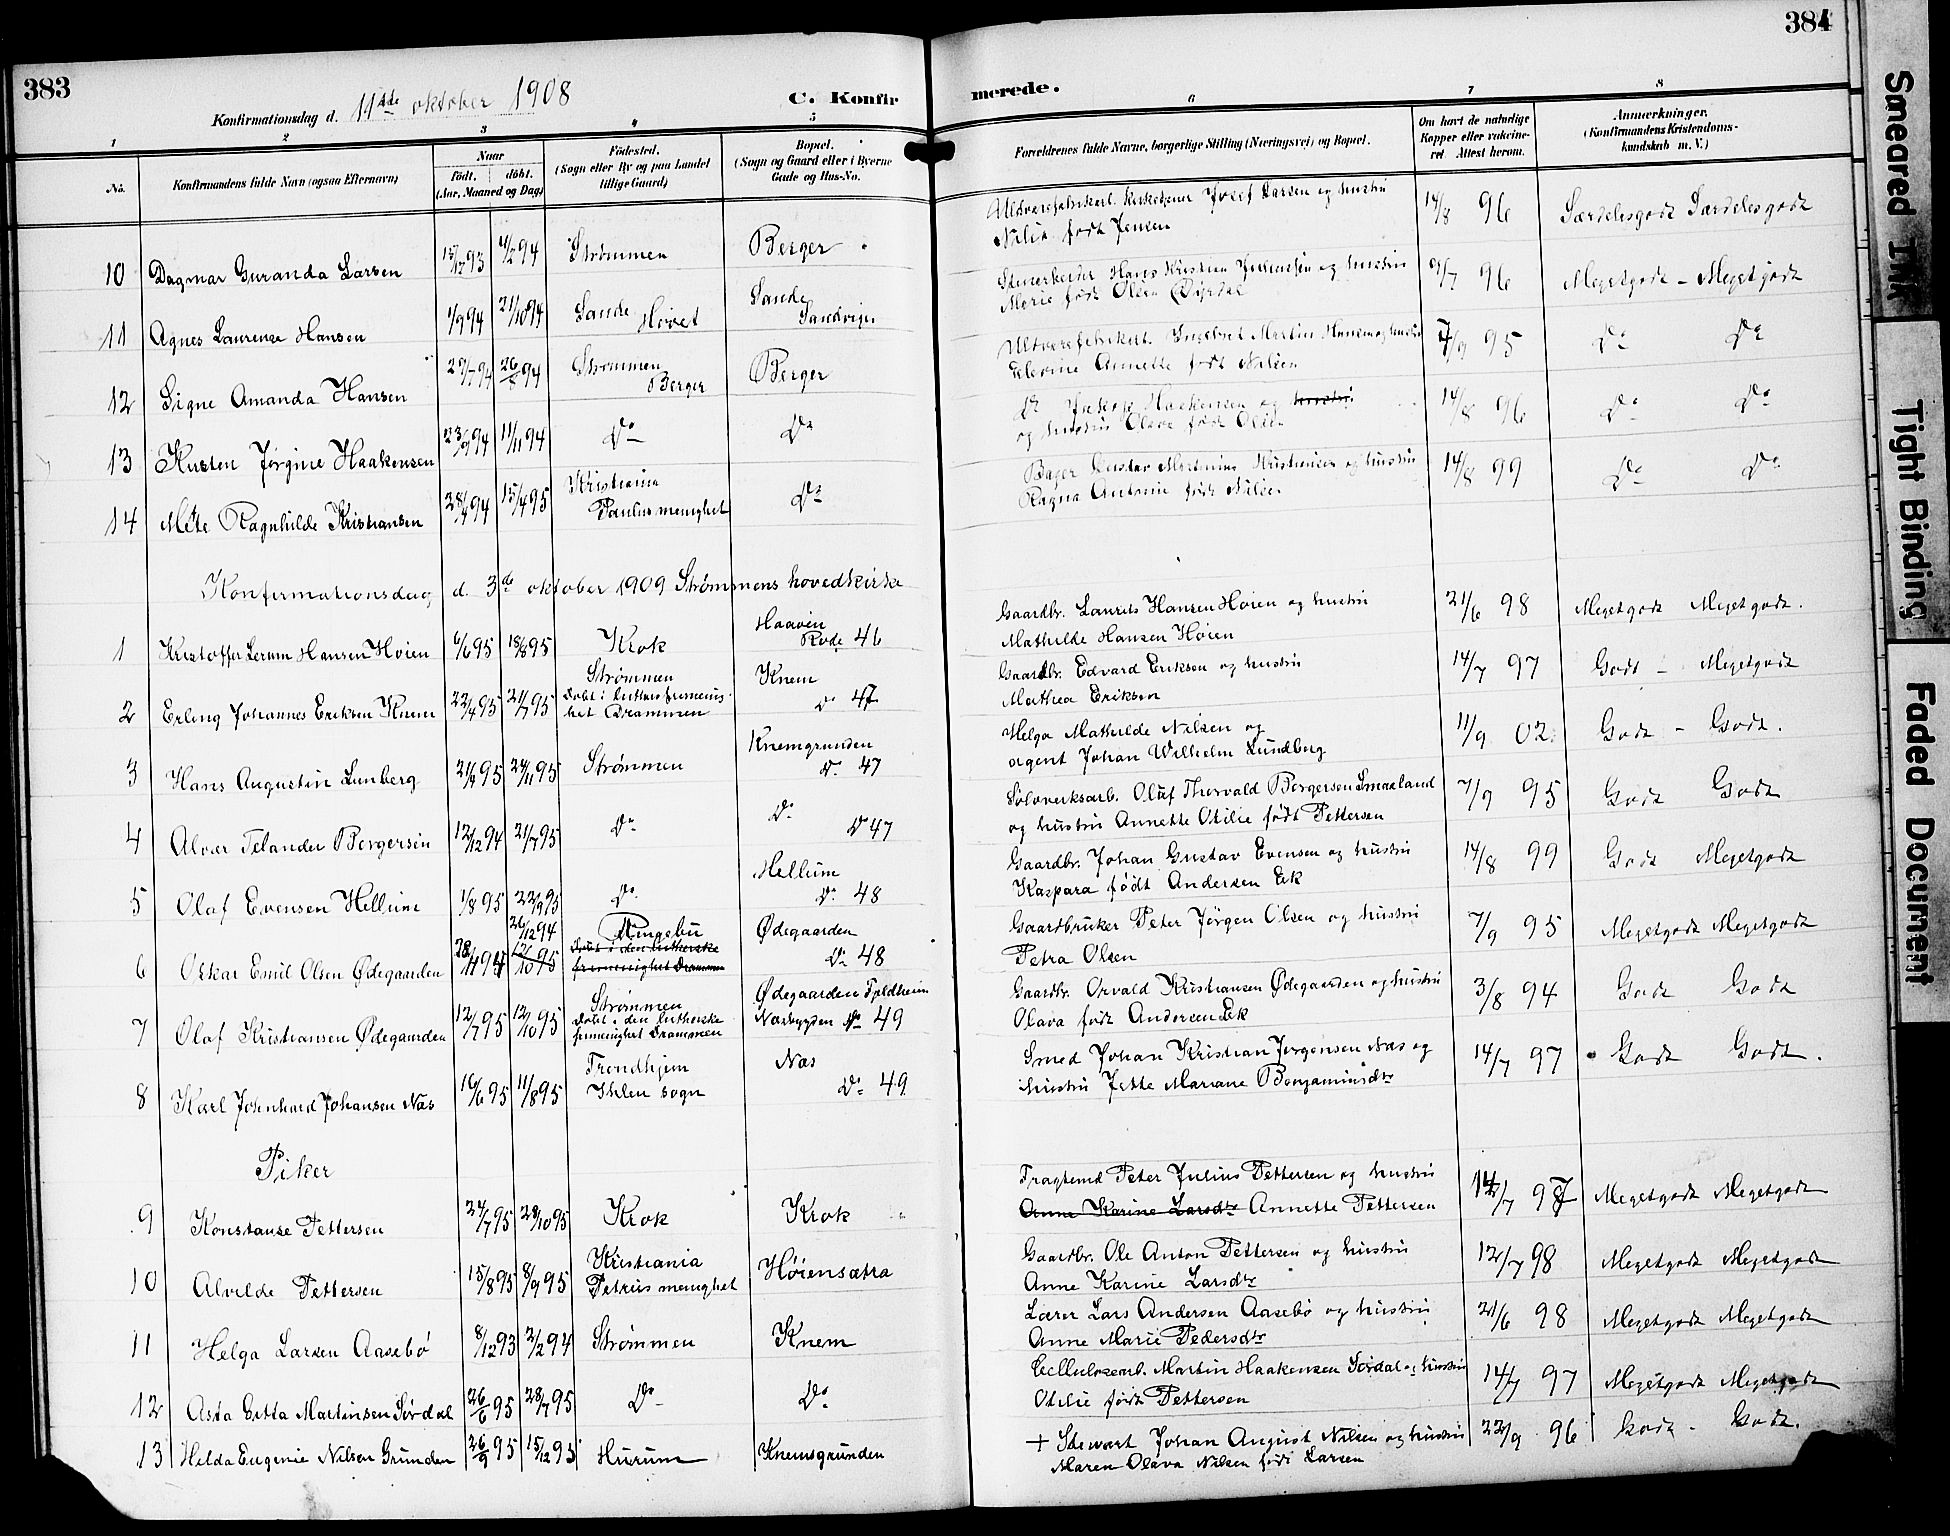 383
384
Konfirmationsdag d. 11te oktober 1908
C. Konfir merede.
1 2 3 4 5 6 7 8
No.
Konfirmandens fulde Navn (ogsaa Efternavn)
Naar
født. døbt.
(Aar, Maaned og Dag)
Fødested.
(Sogn eller By og paa Landet
tillige Gaard)
Bopæl.
(Sogn og Gaard eller i Byerne
Gade og Hus-No.
Forældrenes fulde Navne, borgerlige Stilling (Næringsvei) og Bopæl.
Om havt de naturlige
Kopper eller vakcine-
ret Attest herom.
Anmærkninger.
(Konfirmandens Kristendoms-
kundskab m. V.)
10 Dagmar Guranda Larsen 15/12 93 4/2 94 Strømmen Berger
Uldvarefabrikarb. Kirketjener Josef Larsen og hustru
født Jensen
14/8 96 Særdelesgodt Særdelesgodt
11 Agnes Laurense Hansen 1/9 94 21/10 94 Sande Hovet Sande Sandvigen
Stenarbeider Hans Kristian Johannesen og hustru
Marie født Olsen
9/7 96 Megetgodt - Megetgodt
12 Signe Amanda Hansen 29/7 94 26/8 94 Strømmen Berger Berger
Uldvarefabrikarb. Ingebret Martin Hansen og hustru
Annette født Nilsen
7/9 95 Do Do
13 Kirsten Jørgine Haakensen 23/9 94 11/11 94 Do Do
Do Haakensen og hustru
og hustru Olava født Olsen
14/8 96 Do Do
14 Mette Ragnhilde Kristiansen 28/9 94 15/4 95 Kristiania
Paulus menighet Do
Bager Gustav Martinius Kristiansen og hustru
Ragna Antonie født Nilsen
14/8 99 Do Do
Konfirmationsdag d. 3de oktober 1909 Strømmens hovedkirke
1 Kristoffer Lerum Hansen Høien 6/6 95 18/8 95 Krok Haaven
Rode 46
Gaardbr. Laurits Hansen Høien og hustru
Mathilde Hansen Høien
21/6 98 Megetgodt Megetgodt.
2 Erling Johannes Eriksen Knem 22/4 95 21/7 95 Strømmen
Døbt i luthers frimenig-
het Drammen Knem
Do 47
Gaardbr. Edvard Eriksen og hustru
Mathea Eriksen
14/7 97 Godt - Megetgodt
3 Hans Augustin Lunberg 21/9 95 24/11 95 Strømmen Knemgrunden
Do 47
Helga Mathilde Nilsen og
agent Johan Wilhelm Lundberg
11/9 02. Godt - Godt.
4 Alvar Telander Bergersen 12/12 94 21/7 95 Do Do
Do 47
Sølvverksarb. Oluf Thorvald Bergersen Smaaland
og hustru Annette Otilie født Pettersen
7/9 95 Godt Godt
5 Olaf Evensen Hellum 1/8 95 22/9 95 Do Hellum
Do 48
Gaardbr. Johan Gustav Evensen og hustru
Kaspara født Andersen Ek
14/8 99 Godt Megetgodt
6 Oskar Emil Olsen Ødegaarden 28/11 94 26/12 94
12/10 95 Ringebu
Døbt i den lutherske
frimenighet Drammen Ødegaarden
Do 48
Gaardbruker Peter Jørgen Olsen og hustru
Petra Olsen
7/9 95 Megetgodt Megetgodt
7 Olaf Kristiansen Ødegaarden 12/7 95 12/10 95 Strømmen
Døbt i den lutherske
frimenighet Drammen Ødegaarden Fjeldheim
Næsbygden Do 49
Gaardbr. Orvald Kristiansen Ødegaarden og hustru
Olava født Andersen Ek
3/8 94 Godt Godt
8 Karl Johnhard Johansen Næs 16/6 95 11/8 95 Trondhjem
Ihlen sogn Næs
Do 49
Smed Johan Kristian Jørgensen Næs og
hustru Jette Mariane Benjaminsdtr
14/7 97 Godt Godt.
Piker
9 Konstanse Pettersen 24/7 95 28/10 95 Krok Krok
Fragtemd Peter Julius Pettersen og hustru
Anne Karine Larsdtr Annette Pettersen
14/7 97 Megetgodt Megetgodt
10 Alvilde Pettersen 15/8 95 8/9 95 Kristiania
Petrus menighet Høiensætra
Gaardbr. Ole Anton Pettersen og hustru
Anne Karine Larsdtr
12/7 98 Megetgodt Megetgodt
11 Helga Larsen Aasebø 8/12 93 2/2 94 Strømmen Knem
Lærer Lars Andersen Aasebø og hustru
Anne Marie Pedersdtr
21/6 98 Megetgodt Megetgodt
12 Asta Gitta Martinsen Sørdal 26/6 95 28/7 95 Do Do
Cellulosearb. Martin Haakensen Sørdal og hustru
Otilie født Pettersen
14/7 97 Megetgodt Megetgodt
13 Hilda Eugenie Nilsen Grunden 26/9 95 15/12 95 Hurum Knemsgrunden
+ Stewart Johan August Nilsen og hustru
Maren Olava Nilsen født Larsen
22/9 96 Godt - Godt.
Smeared Ink
Tight Binding
Faded Document